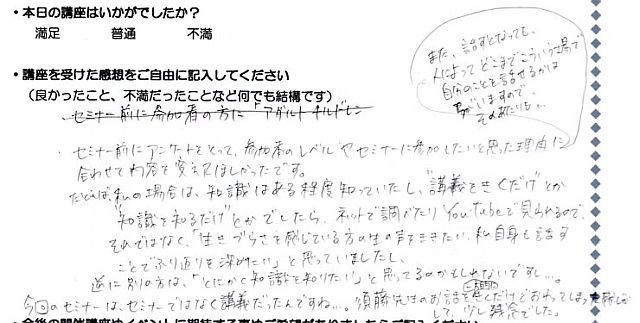 ・本日の講座はいかがでしたか？
満足　普通　不満
・講座を受けた感想をご自由に記入してください
（良かったこと、不満だったことなど何でも結構です）
セミナー前に参加者の方に「アダルトチルドレン
また、話すとなっても、
人によってどこまでこういう場で
自分のことを話せるかは
ちがいますので、
そのあたりも…
・セミナー前にアンケートをとって、参加者のレベルやセミナーに参加したいと思った理由に
合わせて内容を変えてほしかったです。
たとえば、私の場合は、知識はある程度知っていたし、"講義をきくだけ"とか
"知識を知るだけ"とかでしたら、ネットで調べたりYouTubeで見られるので、
それではなく、「生きづらさを感じている方の生の声をききたい、私自身も話す
ことでふり返りを深めたい」と思っていましたし、
逆に別の方は、「とにかく知識を知りたい」と思ってるのかもしれないですし…。
今回のセミナーは、セミナーではなく講義だったんですね…。須藤先生のお話を
だけでおわってしまった
して、少し残念でした。